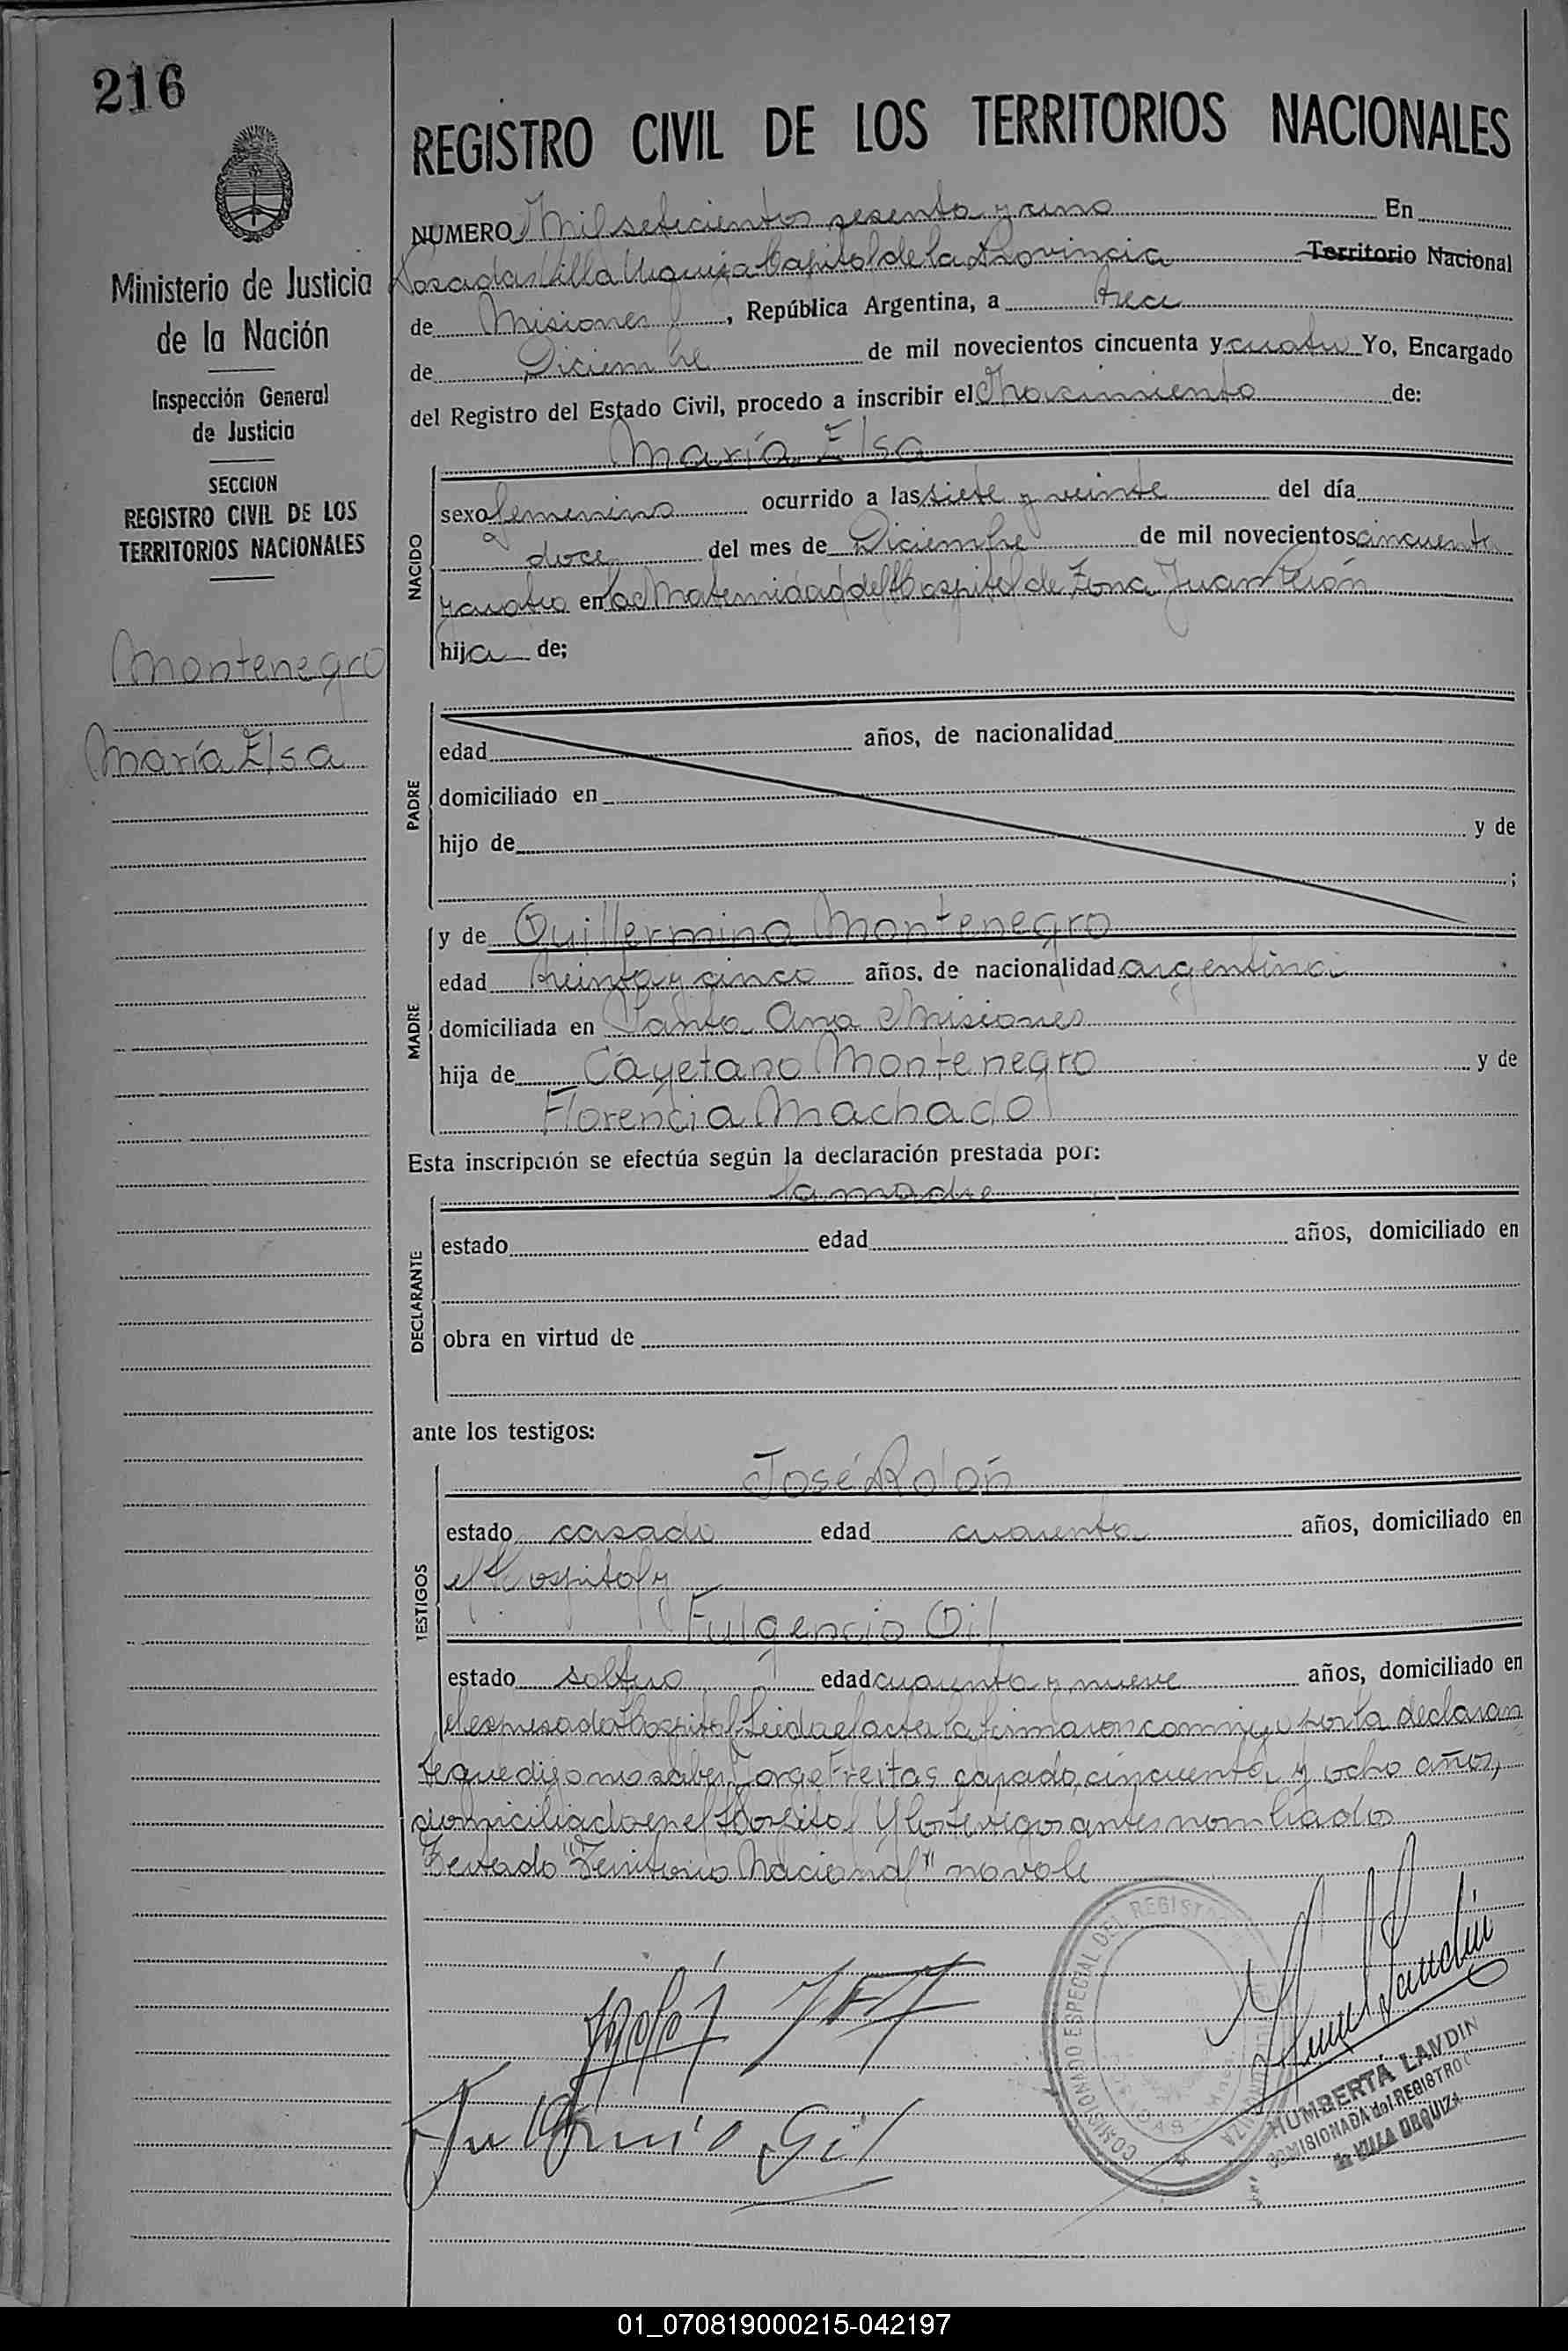 216
Ministerio de Justicia
de la Nación
Inspección General
de Justicia
SECCION
REGISTRO CIVIL DE LOS
TERRITORIOS NACIONALES
Montenegro
María Elsa
REGISTRO CIVIL DE LOS TERRITORIOS NACIONALES
NUMERO Mil setecientos sesenta y uno En
Posadas Villa Urquiza Capital de la Provincia Territorio Nacional
de Misiones, República Argentina, a trece
de Diciembre de mil novecientos cincuenta y cuatro Yo, Encargado
del Registro del Estado Civil, procedo a inscribir el Nacimiento de:
María Elsa
NACIDO
sexo femenino ocurrido a las siete y veinte del día
doce del mes de Diciembre de mil novecientos cincuenta
y cuatro en la Maternidad del Hospital de Zona Juan Perón
hija de;
PADRE
edad años, de nacionalidad
domiciliado en
hijo de y de
;
MADRE
y de Guillermina Montenegro
edad treinta y cinco años, de nacionalidad argentina
domiciliada en Santa Ana Misiones
hija de Cayetano Montenegro y de
Florencia Machado
Esta inscripción se efectúa según la declaración prestada por:
la madre
DECLARANTE
estado edad años, domiciliado en
obra en virtud de
ante los testigos:
TESTIGOS
José Rolón
estado casado edad cuarenta años, domiciliado en
el Hospital y
Fulgencio Gil
estado soltero edad cuarenta y nueve años, domiciliado en
el expresado Hospital Leida el acta la firmaron conmigo por la declaran
te que dijo no saber Jorge Freitas casado, cincuenta y ocho años,
domiciliado en el Hospital y los testigos antes nombrados
Testado "Territorio Nacional" no vale
Fulgencio Gil
COMISIONADO ESPECIAL DEL REGISTRO
HUMBERTA LANDIN
COMISIONADA del REGISTRO C
de VILLA URQUIZA
01_070819000215-042197